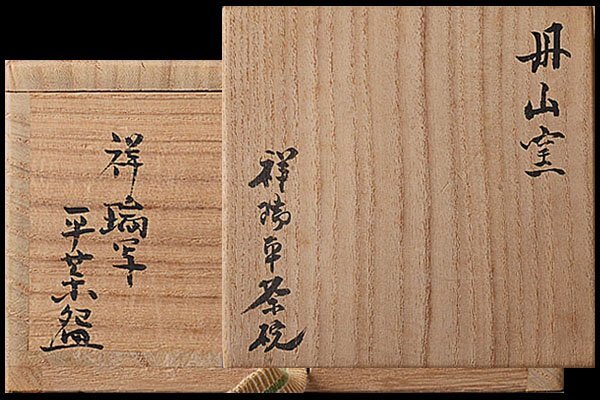 丹山窯
祥瑞平茶碗
祥瑞写
平茶盌